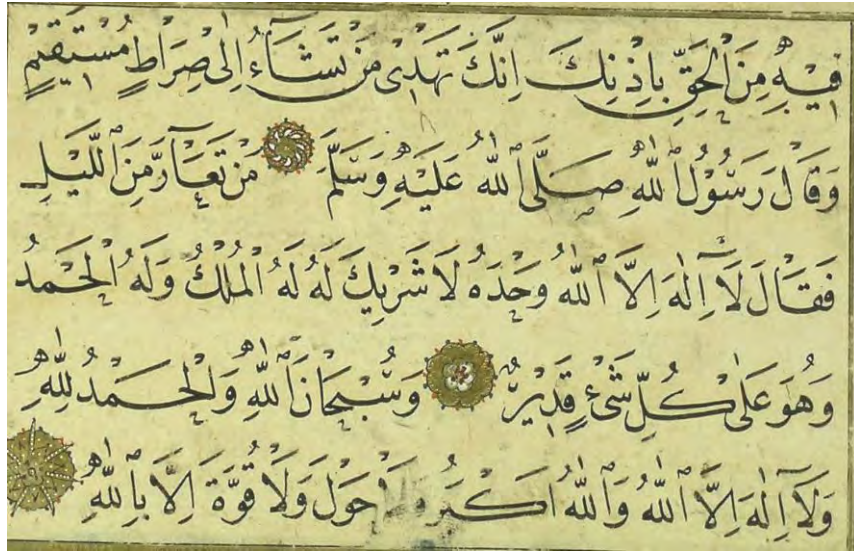 فِيهِ مِنَ الْحَقِّ بِاِذْنِكَ اِنَّكَ تَهْدِى مَنْ تَشَآءُ اِلٰى صِرَاطٍ مُسْتَقِيمٍ
وَقَالَ رَسُولُ اللّٰهِ صَلَّى اللّٰهُ عَلَيْهِ وَسَلَّمَ مَنْ تَعَآرَّ مِنَ اللَّيْلِ
فَقَالَ لَآ اِلٰهَ اِلَّا اللّٰهُ وَحْدَهُ لَا شَرِيكَ لَهُ لَهُ الْمُلْكُ وَلَهُ الْحَمْدُ
وَهُوَ عَلٰى كُلِّ شَىْءٍ قَدِيرٌ وَسُبْحَانَ اللّٰهِ وَالْحَمْدُ لِلّٰهِ
وَلَآ اِلٰهَ اِلَّا اللّٰهُ وَاللّٰهُ اَكْبَرُ حَوْلَ وَلَا قُوَّةَ اِلَّا بِاللّٰهِ